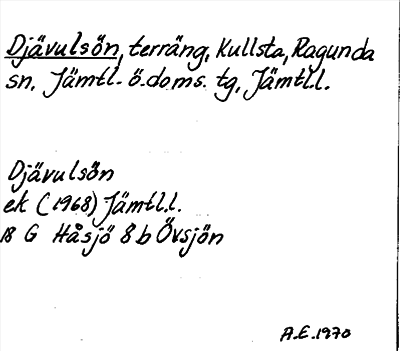 Djävulsön, terräng, Kullsta, Ragunda
sn, Jämtl. ö. doms. tg, Jämtl.l.
Djävulsön
ek (1968) Jämtl.l.
18 G Håsjö 8 b Övsjön
A.E. 1970